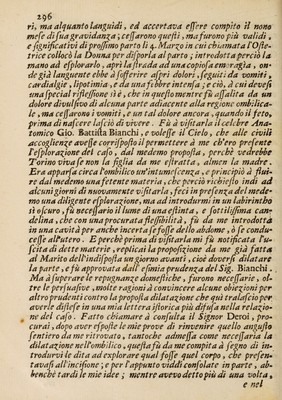 296
ri, ma alquanto languidi, ed accertava essere compito il nono
mese di sua gravidanza; cessarono questi, ma furono più validi,
e significativi di prossimo parto li 4. Marzo in cui chiamata l'Oste-
trice collocò la Donna per disporla al parto; introdotta perciò la
mano ad esplorarlo, aprì la strada ad una copiosa emoragia, on-
de già languente ebbe à sofferire aspri dolori, seguiti da vomiti,
cardialgie, lipotimia, e da una febbre intensa; e ciò, à cui devesi
una special riflessione si è, che in quest'omentre fù assalita da un
dolore divulsivo di alcune parti adiacente alla regione ombilica-
le, ma cessarono i vomiti, e un tal dolore ancora, quando il feto,
prima di nascere lasciò di vivere. Fù à visitarla il celebre Ana-
tomico Gio. Battista Bianchi, e volesse il Cielo, che alle civili
accoglienze avesse corrisposto il permettere à me ch'ero presente
l'esplorazione del caso, dal medemo proposta, perchè vedrebbe
Torino viva se non la figlia da me estratta, almen la madre.
Era apparsa circa l'ombilico un'intumescenza, e principiò à flui-
re dal medemo una fetente materia, che perciò richiesto indi ad
alcuni giorni di nuovamente visitarla, feci in presenza del mede-
mo una diligente esplorazione, ma ad introdurmi in un labirintho
sì oscuro, fù necessario il lume di una assinta, e sottilissima can-
delina, che con una procurata flessibilità, fù da me introdotta
in una cavità per anche incerta se fosse dello abdome, ò se condu-
cesse all'utero. E perchè prima di visitarla mi fù notificata l'u-
scita di dette materie, replicai la proposizione da me già fatta
al Marito dell'indisposta un giorno avanti, cioè doversi dilatare
la parte, e fù approvata dall'esimia prudenza del Sig. Bianchi.
Ma à superare le repugnanze domestiche, furono necessarie, ol-
tre le persuasive, molte ragioni à convincere alcune obiezioni per
altro prudenti contro la proposta dilatazione che quì tralascio per
avere distese in una mia lettera istorica più diffusa nella relazio-
ne del caso. Fatto chiamare à consulta il Signor Deroi, pro-
curai, dopo aver esposte le mie prove di rinvenire quello angusto
sentiero da me ritrovato, tantoche admessa come necessaria la
dilatazione nell'ombilico, questa fù da me compita à segno di in-
trodurvi le dita ad explorare qual fosse quel corpo, che presen-
tavasi all'incisione; e per l'appunto viddi consolate in parte, ab-
benchè tardi le mie idee; mentre avevo detto più di una volta,
e nel